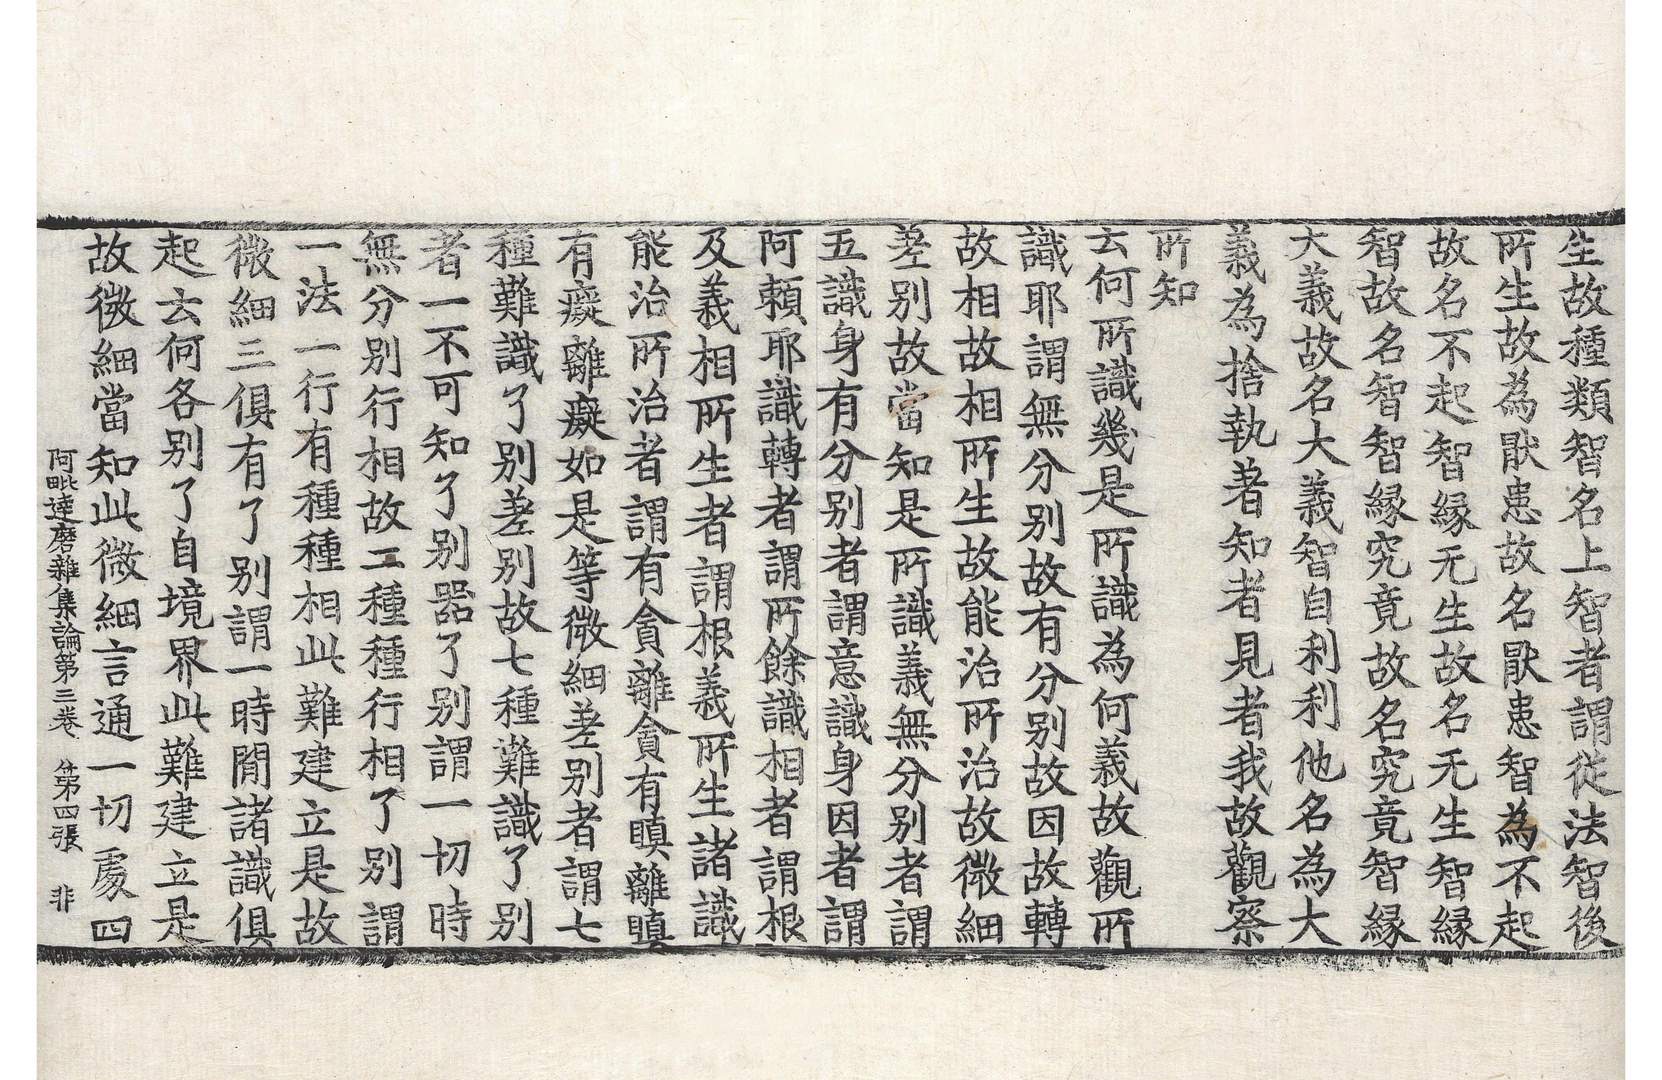 生故種類智名上智者謂從法智後
所生故為猒患故名猒患智為不起
故名不起智縁无生故名无生智縁
智故名智智縁究竟故名究竟智縁
大義故名大義智自利利他名為大
義為捨執著者知者見者我故觀察
所知
云何所識幾是所識為何義故觀所
識耶謂無分別故有分別故因故轉
故相故相所生故能治所治故微細
差別故當知是所識義無分別者謂
五識身有分別者謂意識身因者謂
阿賴耶識轉者謂所餘識相者謂根
及義相所生者謂根義所生諸識
能治所治者謂有貪離貪有瞋離瞋
有癡離癡如是等微細差別者謂七
種難識了別差別故七種難識了別
者一不可知了別器了別謂一切時
無分別行相故二種種行相了別謂
一法一行有種種相此難建立是故
微細三俱有了別謂一時間諸識俱
起云何各別了自境界此難建立是
故微細當知此微細言通一切處四
阿毗達磨雜集論第三卷 第四張 非